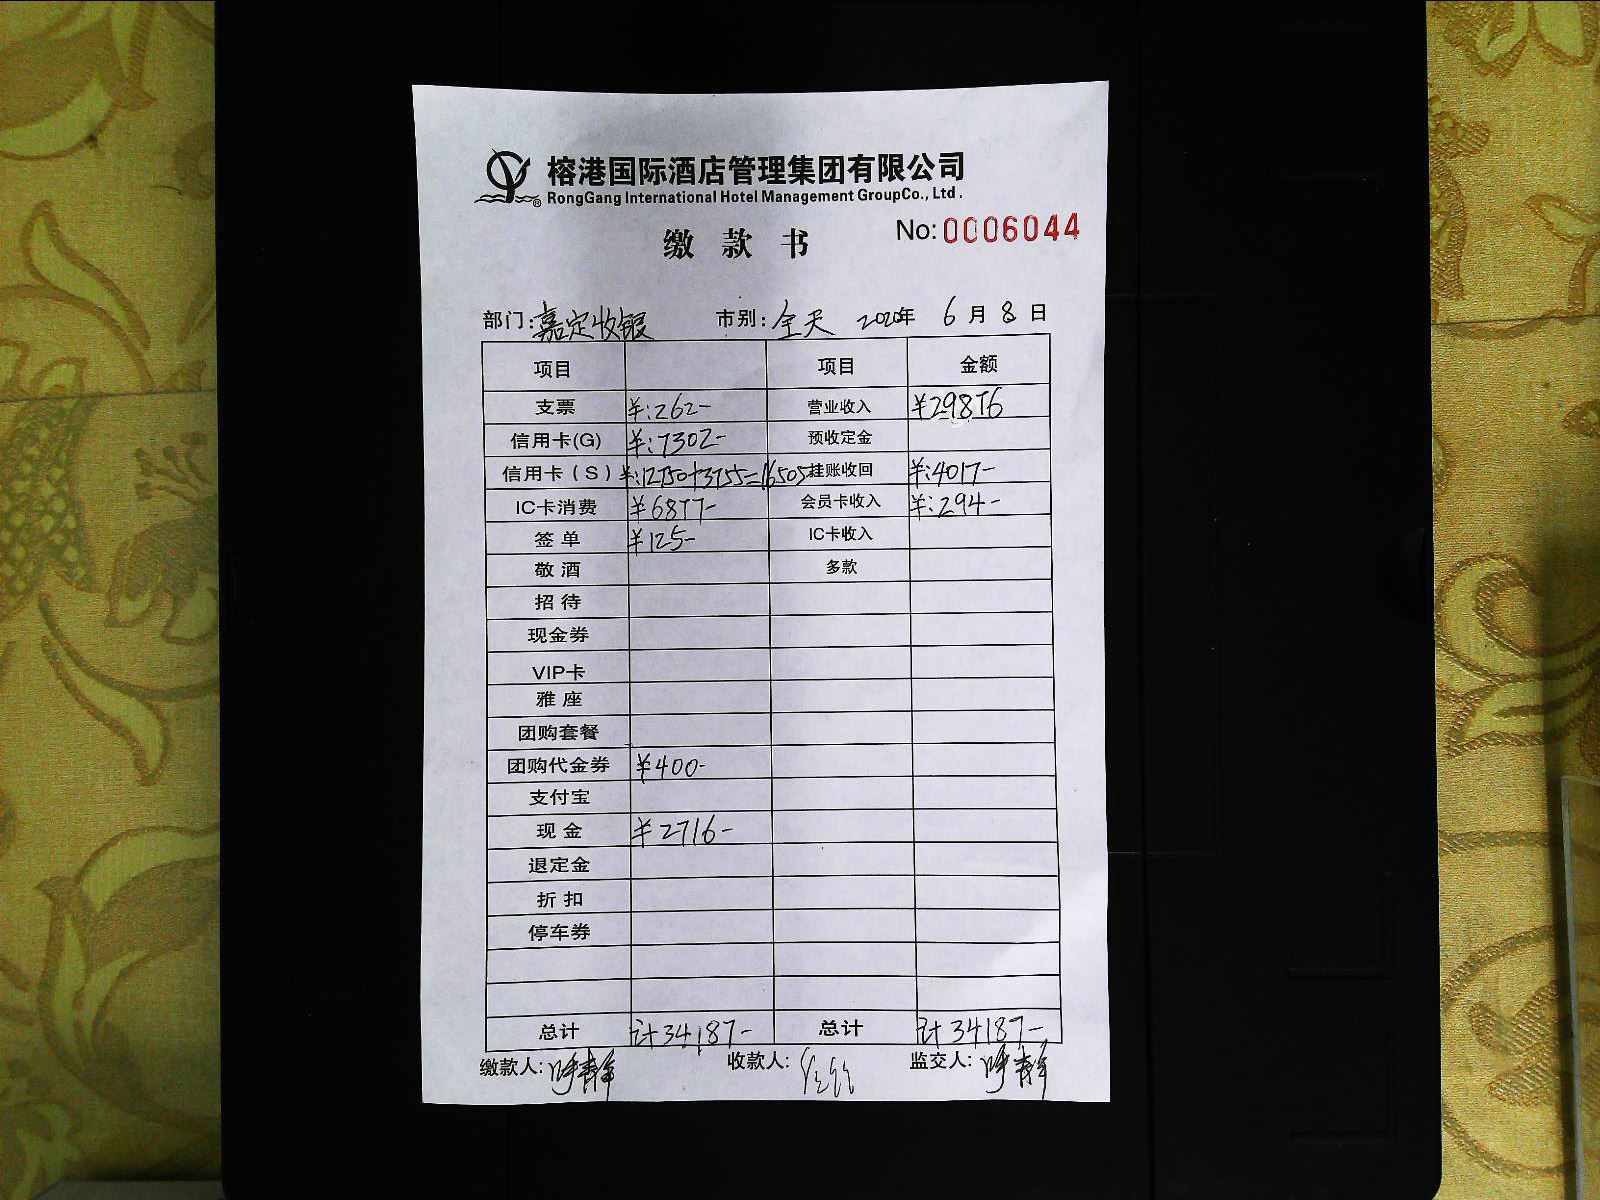 榕港国际酒店管理集团有限公司
®RongGang International Hotel Management GroupCo., Ltd.
No:0006044
缴 款 书
部门:嘉定收银 市别:全天 2020年 6月8日
项目 项目 金额
支票 ¥:262- 营业收入 ¥29876
信用卡(G) ¥:7302- 预收定金
信用卡(S) ¥:12750+3755=16505 挂账收回 ¥:4017-
IC卡消费 ¥6877- 会员卡收入 ¥:294-
签单 ¥125- IC卡收入
敬酒 多款
招待
现金券
VIP卡
雅座
团购套餐
团购代金券 ¥400-
支付宝
现金 ¥2716-
退定金
折扣
停车券
总计 计34187- 总计 计34187-
缴款人: 收款人: 监交人: